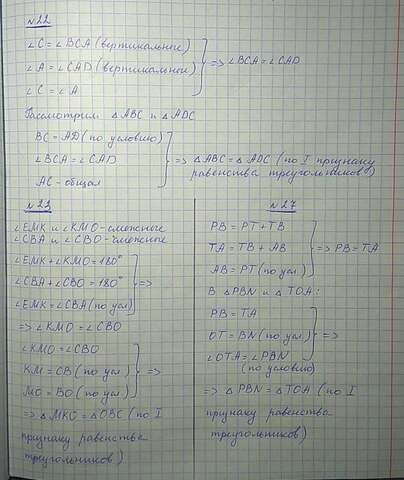 №22
∠C = ∠BCA (вертикальные)
∠A = ∠CAD (вертикальные)
∠C = ∠A
=> ∠BCA = ∠CAD
Рассмотрим △ABC и △ADC
BC = AD (по условию)
∠BCA = ∠CAD
AC - общая
=> △ABC = △ADC (по I признаку
равенства треугольников)
№23
∠EMK и ∠KMO - смежные
∠CBA и ∠CBO - смежные
∠EMK + ∠KMO = 180°
∠CBA + ∠CBO = 180°
∠EMK = ∠CBA (по усл)
=>
=> ∠KMO = ∠CBO
∠KMO = ∠CBO
KM = CB (по усл)
MO = BO (по усл)
=>
=> △MKO = △OBC (по I
признаку равенства
треугольников)
№27
PB = PT + TB
TA = TB + AB
AB = PT (по усл)
=> PB = TA
В △PBN и △TOA:
PB = TA
OT = BN (по усл)
∠OTA = ∠PBN
(по условию)
=>
=> △PBN = △TOA (по I
признаку равенства
треугольников)